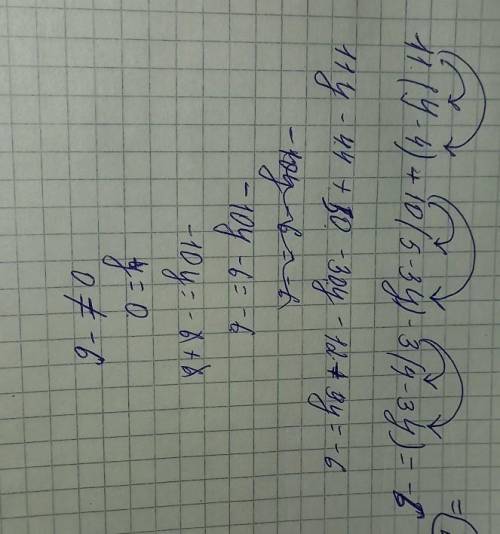 11(y-4)+10(5-3y)-3(4-3y)=-6
11y-44+50-30y-12+9y=-6
-10y-6=-6
-10y-6=-6
-10y=-6+6
y=0
0≠-6